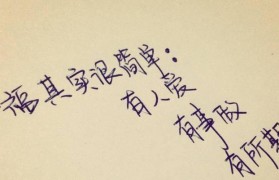 福其实很简单:
有人爱
有事做
有所期